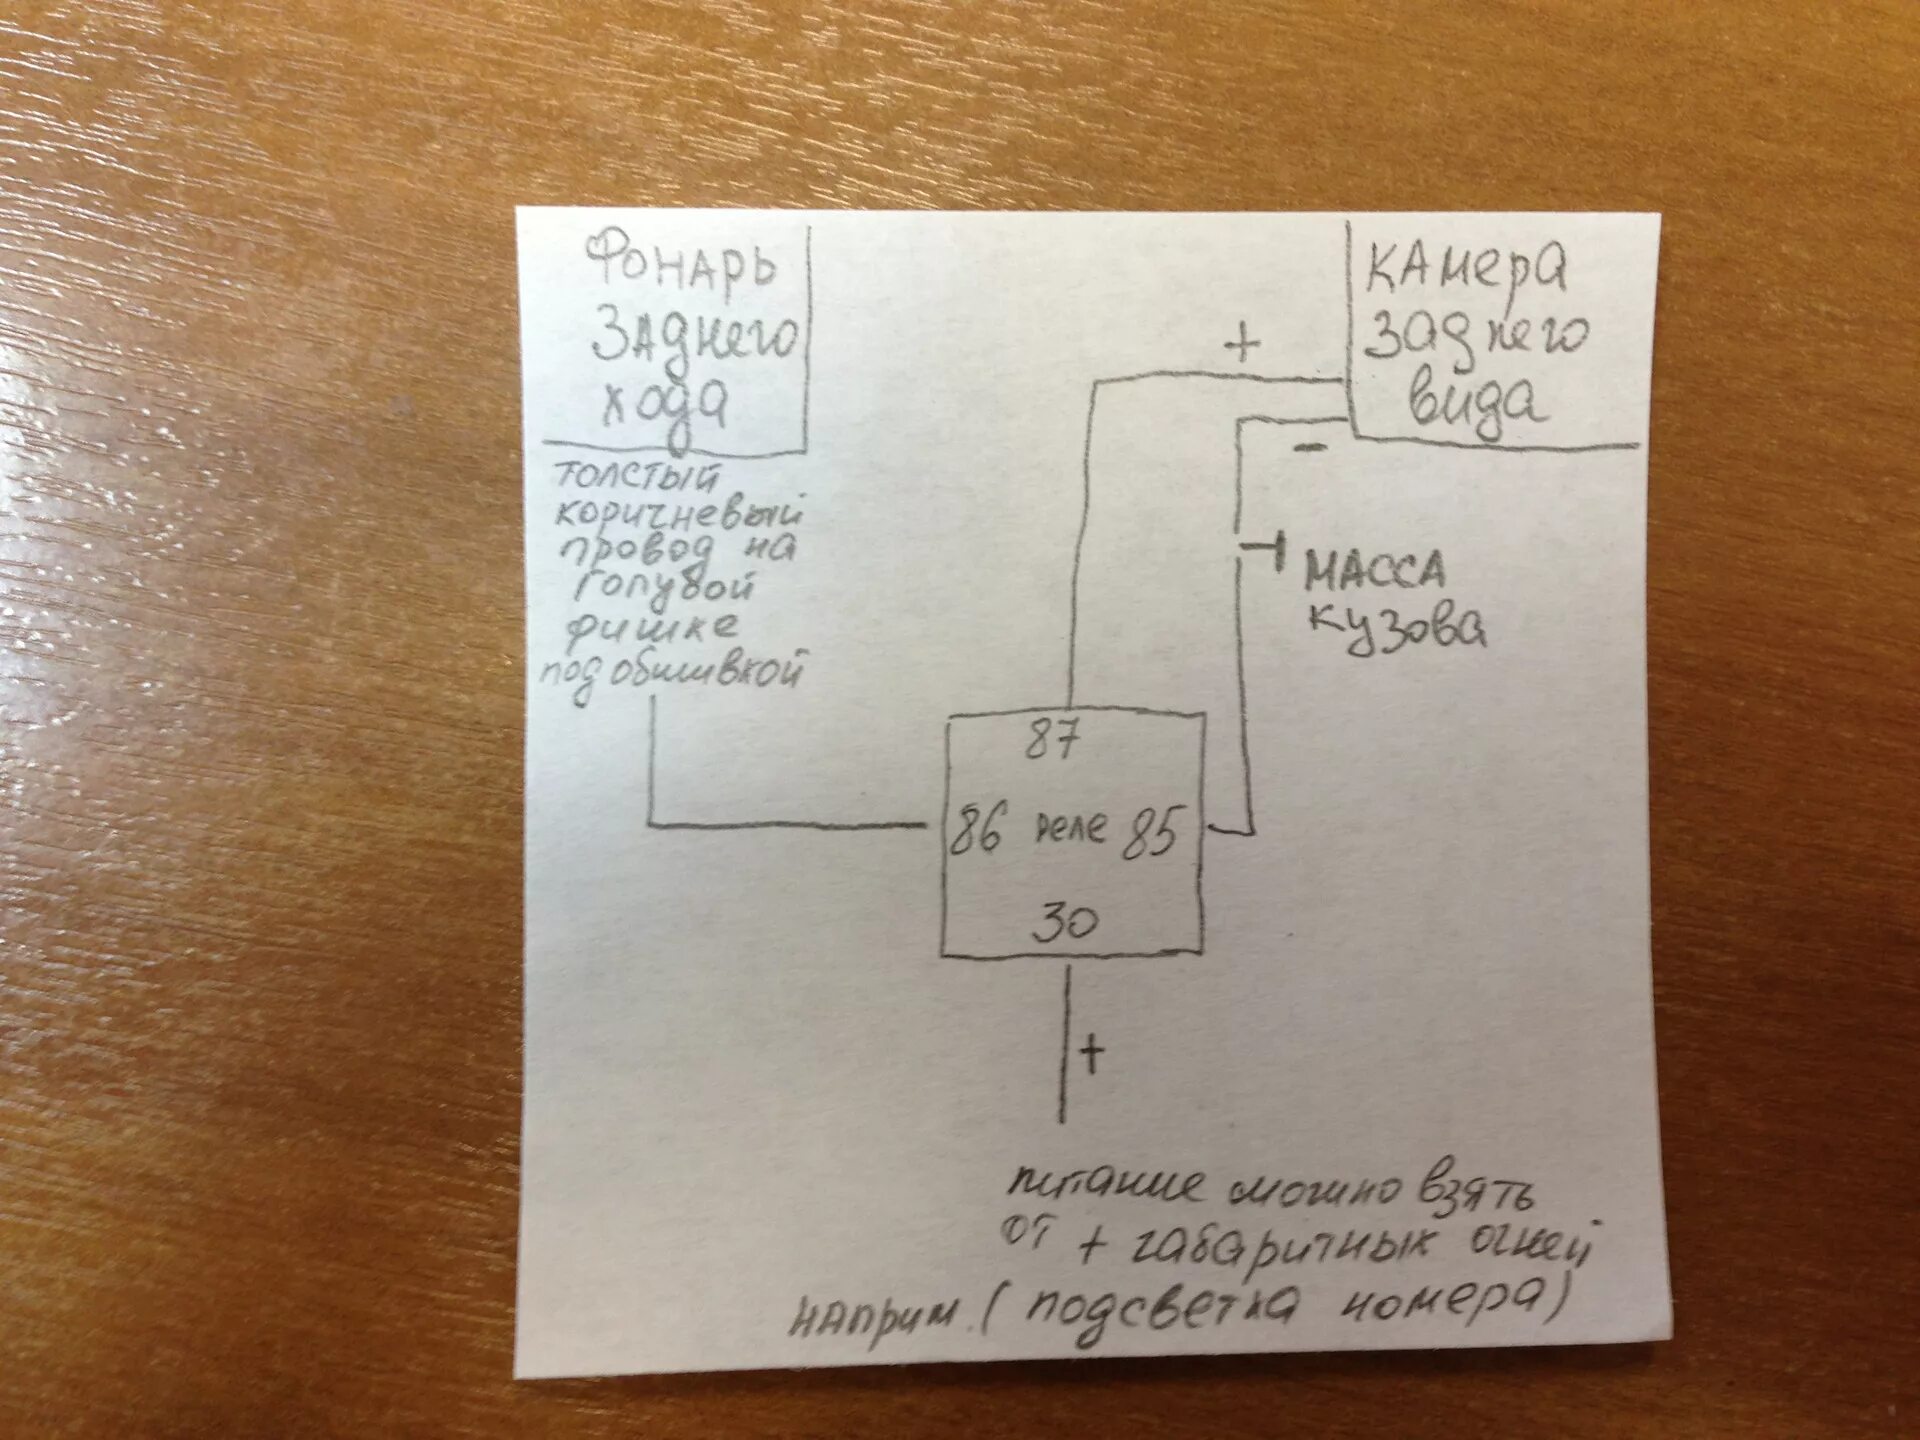 Фонарь
Заднего
хода
толстый
коричневый
провод на
голубой
фишке
под обшивкой
+
камера
заднего
вида
-
масса
кузова
87
86 реле 85
30
+
питание можно взять
от + габаритных огней
наприм. (подсветка номера)